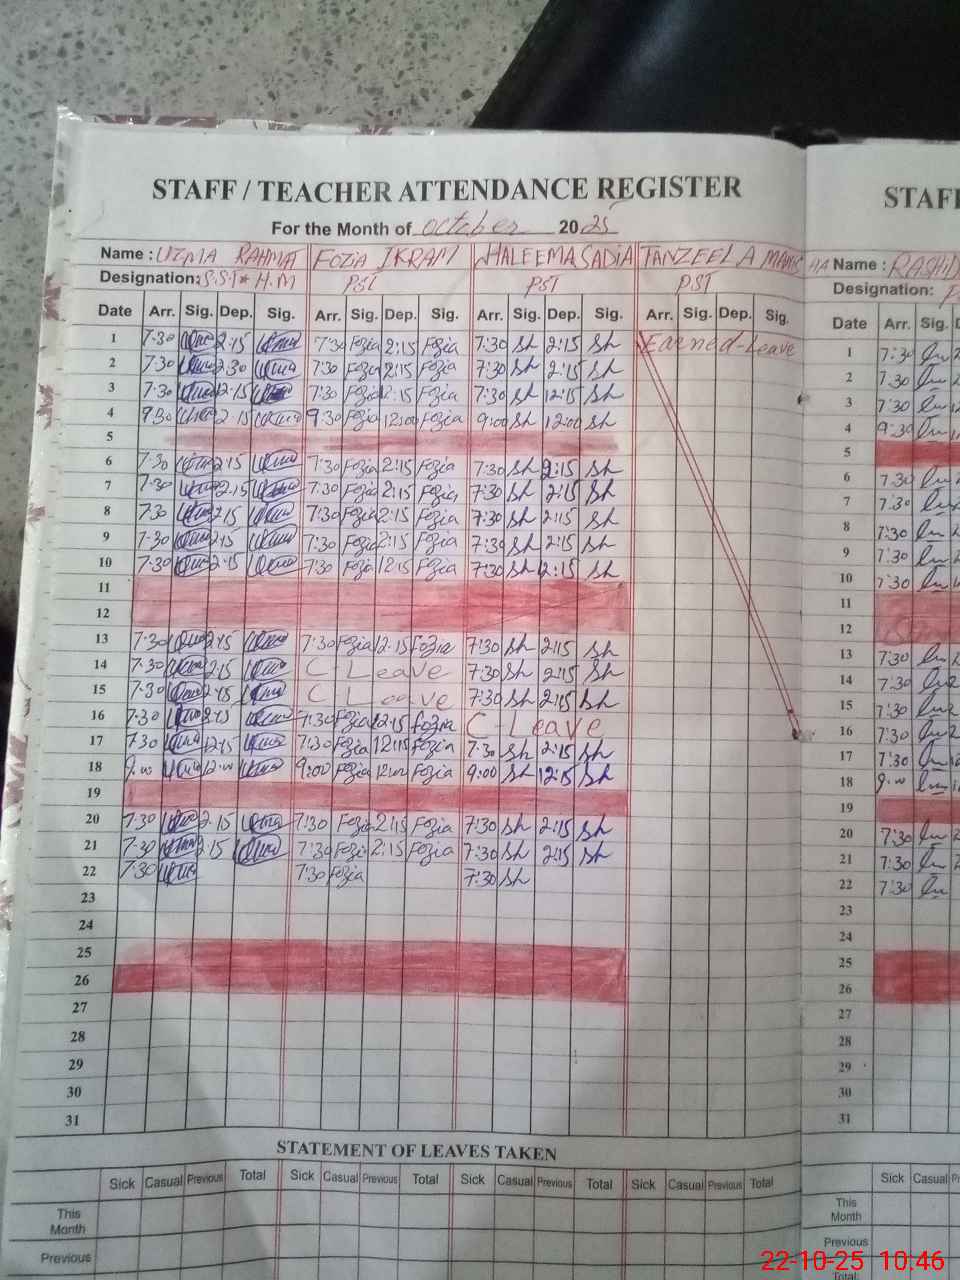 STAFF / TEACHER ATTENDANCE REGISTER
For the Month of October 2025
Name : UZMA RAHMAT FOZIA IKRAM HALEEMA SADIA TANZEELA
Designation: S.S.T H.M PST PST PST
Date Arr. Sig. Dep. Sig. Arr. Sig. Dep. Sig. Arr. Sig. Dep. Sig. Arr. Sig. Dep. Sig.
1 7:30 2:15 7:30 Fozia 2:15 Fozia 7:30 Sh 2:15 Sh Earned-Leave
2 7:30 2:30 7:30 Fozia 2:15 Fozia 7:30 Sh 2:15 Sh
3 7:30 12:15 7:30 Fozia 12:15 Fozia 7:30 Sh 12:15 Sh
4 9:30 12:15 9:30 Fozia 12:00 Fozia 9:00 Sh 12:00 Sh
5
6 7:30 2:15 7:30 Fozia 2:15 Fozia 7:30 Sh 2:15 Sh
7 7:30 2:15 7:30 Fozia 2:15 Fozia 7:30 Sh 2:15 Sh
8 7:30 2:15 7:30 Fozia 2:15 Fozia 7:30 Sh 2:15 Sh
9 7:30 2:15 7:30 Fozia 2:15 Fozia 7:30 Sh 2:15 Sh
10 7:30 12:15 7:30 Fozia 12:15 Fozia 7:30 Sh 12:15 Sh
11
12
13 7:30 2:15 7:30 Fozia 2:15 Fozia 7:30 Sh 2:15 Sh
14 7:30 2:15 C-Leave 7:30 Sh 2:15 Sh
15 7:30 2:15 C Leave 7:30 Sh 2:15 Sh
16 7:30 2:15 7:30 Fozia 2:15 Fozia C-Leave
17 7:30 12:15 7:30 Fozia 12:15 Fozia 7:30 Sh 2:15 Sh
18 9:00 12:00 9:00 Fozia 12:00 Fozia 9:00 Sh 12:15 Sh
19
20 7:30 2:15 7:30 Fozia 2:15 Fozia 7:30 Sh 2:15 Sh
21 7:30 2:15 7:30 Fozia 2:15 Fozia 7:30 Sh 2:15 Sh
22 7:30 7:30 Fozia 7:30 Sh
23
24
25
26
27
28
29
30
31
STATEMENT OF LEAVES TAKEN
Sick Casual Previous Total Sick Casual Previous Total Sick Casual Previous Total Sick Casual Previous Total
This Month
Previous
STAFF
Name : RASHID
Designation:
Date Arr. Sig.
1 7:30
2 7:30
3 7:30
4 9:30
5
6 7:30
7 7:30
8 7:30
9 7:30
10 7:30
11
12
13 7:30
14 7:30
15 7:30
16 7:30
17 7:30
18 9:00
19
20 7:30
21 7:30
22 7:30
23
24
25
26
27
28
29
30
31
Sick Casual
This Month
Previous
Total
22-10-25 10:46